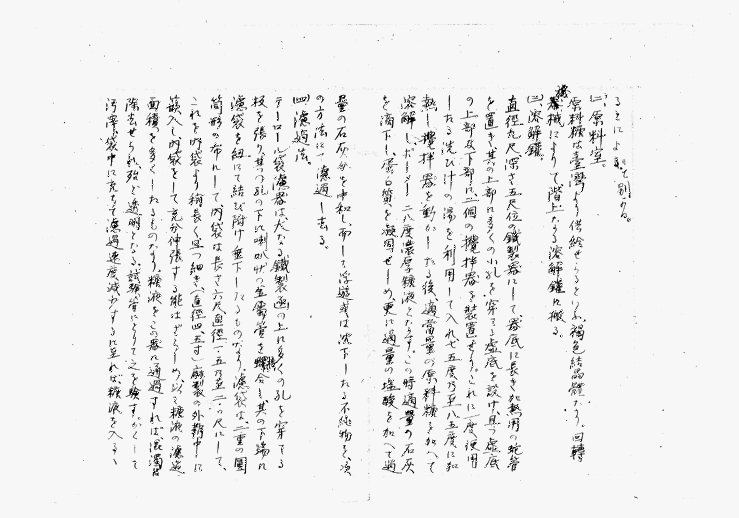 ることによる。
を別ける。
(二)、原料室。
原料糖は臺灣より供給せらるといふ、褐色結晶體なり、回轉
機械によりて階上なる溶解鑵に搬る。
(三)、溶解鑵。
直徑九尺深さ五尺位の鐵製器にして器底に長き加熱用の蛇管
を置き其の上部に多くの小孔を穿てる虚底を設け、且つ虚底
の上部及下部に二個の攪拌器を裝置せり。これに一度使用
したる洗ひ汁の湯を利用して入れ七五度乃至八五度に加
熱し攪拌器を動かしたる後、適當量の原料糖を加へて
溶解し、ボーメー二八度濃厚鏡液となす、この時適量の石灰
を滴下し、蛋白質を凝固せしめ更に適量の塩酸を加へて過
量の石灰分を中和し而して浮遊或は沈下したる不純物を、次
の方法に一濾過し去る。
(四)濾過法。
テーロール袋濾器は大なる鐵製函の上に多くの孔を穿てる
板を張り其の孔の下に喇叭状の金屬管を接合し其の下端に
濾袋を紐にて結び附け垂下したるものなり、濾袋は、二重の圓
筒形の布にして内袋は長さ六尺直徑一・五乃至二・の尺にして、
これを内袋より稍長く且つ細き(直徑四、五寸)麻製の外鞘中に
嵌入し内袋をして充分伸張する能はざらしめ以て糖液の濾過
面積を多くしたるものなり、糖液をこの器に通過すれば混濁は
除去せられ殆ど透明となる、試驗管にとりて之を驗す。かくして
汚滓袋中に充ちて濾過速度減少するに至れば糖液を入るゝ